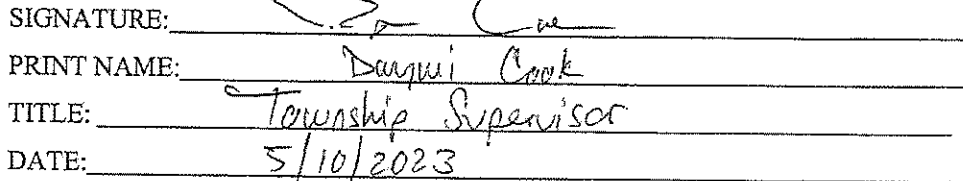 SIGNATURE:
PRINT NAME: Cook
TITLE: Township Supervisor
DATE: 5/10/2023